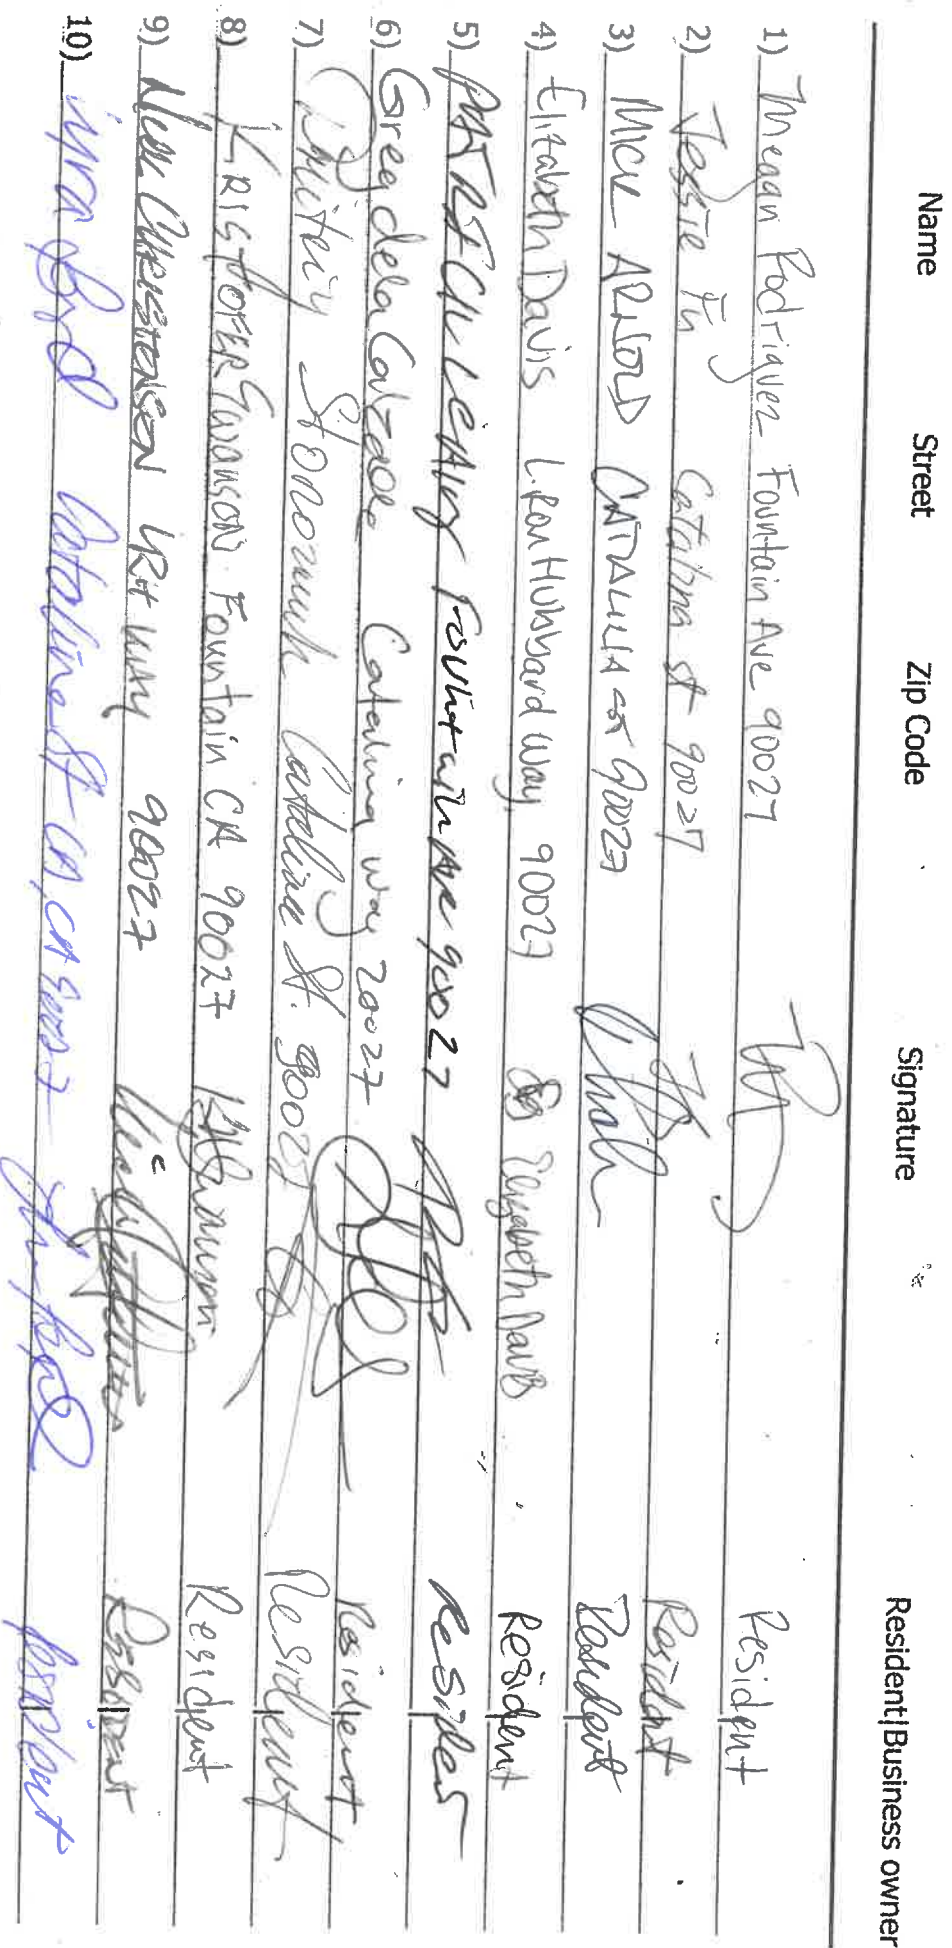 Name Street Zip Code Signature Resident|Business owner
1) Megan Rodriguez Fountain Ave 90027 Resident
2) Jessie Fu Catalina st 90027 Resident
3) MICK ARNOLD CATALINA ST 90027 Resident
4) Elizabeth Davis L. Ron Hubbard Way 90027 Elizabeth Davis Resident
5) Fountain Ave 90027 Resident
6) Greg dela Calzada Catalina way 20027 Resident
7) Catalina St. 90027 Resident
8) KRISTOFER Swanson Fountain CA 90027 Resident
9) CHRISTENSEN LRH WAY 90027 Resident
10) Catalina St CA, CA 90027 Resident